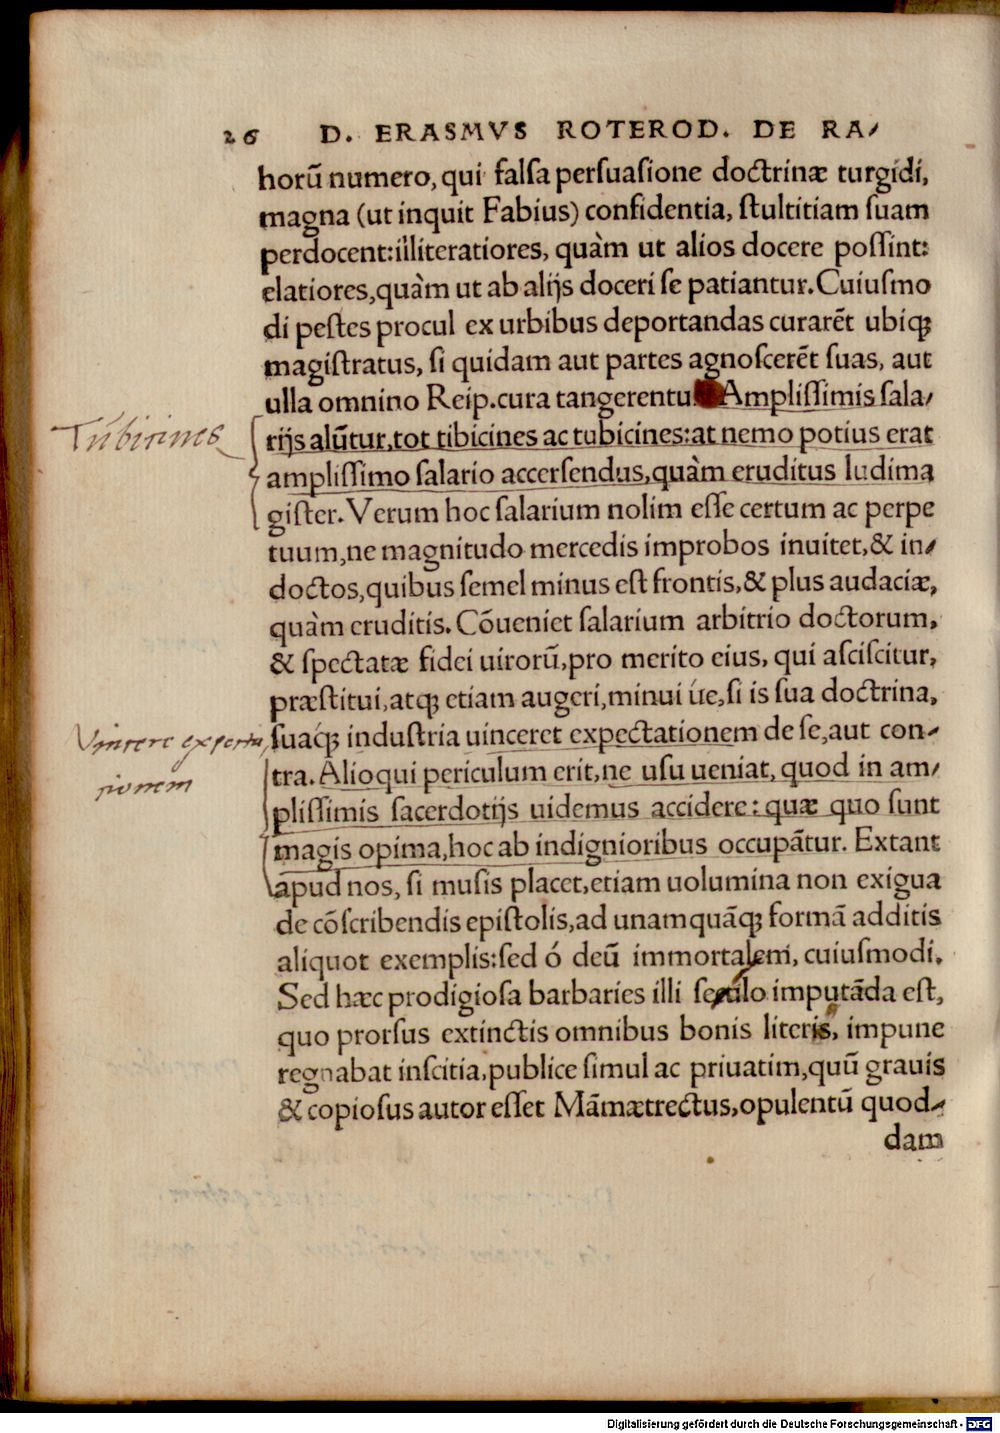 26 D. ERASMVS ROTEROD. DE RA-
horū numero, qui falſa perſuaſione doctrinæ turgidi,
magna (ut inquit Fabius) confidentia, ſtultitiam ſuam
perdocent: illiteratiores, quàm ut alios docere poſſint:
elatiores, quàm ut ab alijs doceri ſe patiantur. Cuiuſmo
di peſtes procul ex urbibus deportandas curarēt ubiq;
magiſtratus, ſi quidam aut partes agnoſcerēt ſuas, aut
ulla omnino Reip. cura tangerentu Ampliſſimis ſala-
Tubicines
rijs alūtur, tot tibicines ac tubicines: at nemo potius erat
ampliſſimo ſalario accerſendus, quàm eruditus ludima
giſter. Verum hoc ſalarium nolim eſſe certum ac perpe
tuum, ne magnitudo mercedis improbos inuitet, & in-
doctos, quibus ſemel minus eſt frontis, & plus audaciæ,
quàm eruditis. Cōueniet ſalarium arbitrio doctorum,
& ſpectatæ fidei uirorū, pro merito eius, qui aſciſcitur,
præſtitui, atq; etiam augeri, minui úe, ſi is ſua doctrina,
Vincere expecta
tionem
ſuáq; induſtria uinceret expectationem de ſe, aut con-
tra. Alioqui periculum erit, ne uſu ueniat, quod in am-
pliſſimis ſacerdotijs uidemus accidere: quæ quo ſunt
magis opima, hoc ab indignioribus occupātur. Extant
apud nos, ſi muſis placet, etiam uolumina non exigua
de cōſcribendis epiſtolis, ad unamquāq; formā additis
aliquot exemplis: ſed ó deū immortalem, cuiuſmodi.
Sed hæc prodigioſa barbaries illi ſeculo imputāda eſt,
quo prorſus extinctis omnibus bonis literis, impune
regnabat inſcitia, publice ſimul ac priuatim, quū grauis
& copioſus autor eſſet Māmætrectus, opulentū quod-
dam
Digitalisierung gefördert durch die Deutsche Forschungsgemeinschaft - DFG